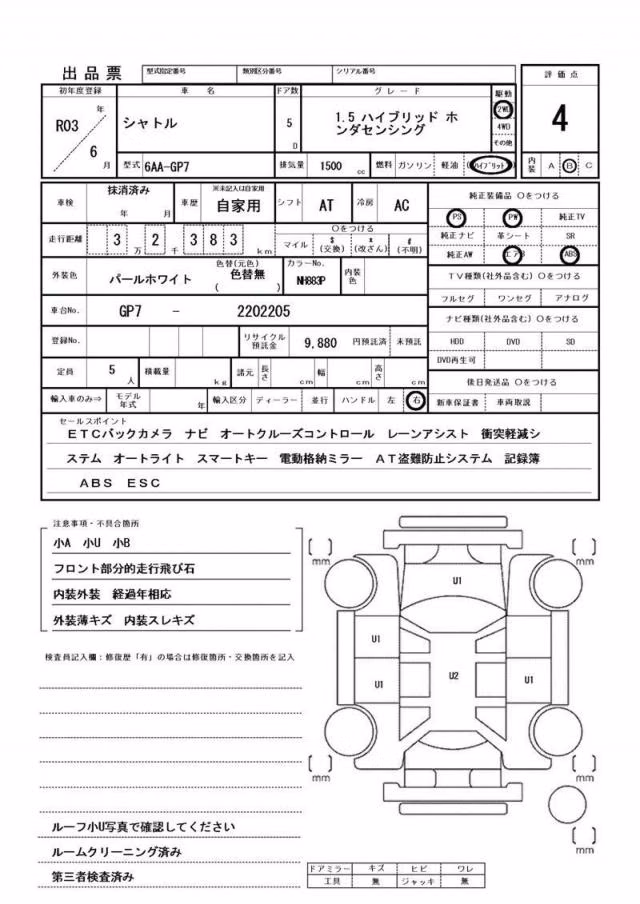 出品票 型式指定番号 類別区分番号 シリアル番号 評価点
初年度登録 車名 ドア数 グレード 駆動
R03 年 6 月 シャトル 5 D 1.5 ハイブリッド ホンダセンシング 2WD 4WD その他 4
型式 6AA-GP7 排気量 1500 cc 燃料 ガソリン 軽油 (ハイブリッド) 内装 A B C
車検 抹消済み 年 月 車歴 ※未記入は自家用 自家用 シフト AT 冷房 AC 純正装備品 〇をつける
PS PW 純正TV
走行距離 3 万 2 千 3 8 3 km 〇をつける マイル $(交換) x(改ざん) #(不明) 純正ナビ 革シート SR
純正AW エアB ABS
外装色 パールホワイト 色替(元色) 色替無 ( ) カラーNo. NH883P 内装色 TV種類(社外品含む) 〇をつける
フルセグ ワンセグ アナログ
車台No. GP7 － 2202205 ナビ種類(社外品含む) 〇をつける
登録No. リサイクル預託金 9,880 円預託済 未預託 HDD DVD SD
DVD再生可
定員 5 人 積載量 kg 諸元 長さ cm 幅 cm 高さ cm 後日発送品 〇をつける
輸入車のみ⇒ モデル年式 年 輸入区分 ディーラー 並行 ハンドル 左 右 新車保証書 車両取説
セールスポイント
ETCバックカメラ ナビ オートクルーズコントロール レーンアシスト 衝突軽減シ
ステム オートライト スマートキー 電動格納ミラー AT盗難防止システム 記録簿
ABS ESC
注意事項・不具合箇所
小A 小U 小B
フロント部分的走行飛び石
内装外装 経過年相応
外装薄キズ 内装スレキズ
検査員記入欄：修復歴「有」の場合は修復箇所・交換箇所を記入
ルーフ小U写真で確認してください
ルームクリーニング済み
第三者検査済み
[ ] mm [ ] mm
U1
U1
U1 U2 U1
[ ] mm [ ] mm
[ ] mm
ドアミラー キズ ヒビ ワレ
工具 無 ジャッキ 無